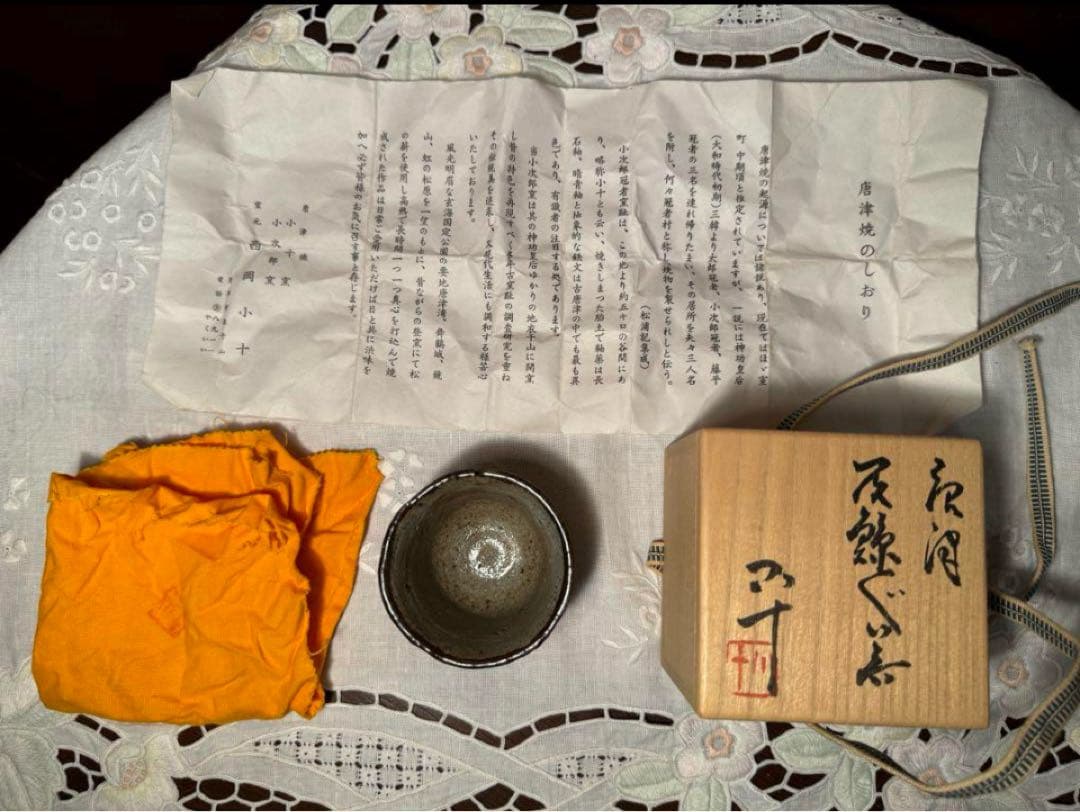 唐津焼のしおり
唐津焼の起源については諸説あり、現在ではほゞ室
町、中期頃と推定されていますが、一説には神功皇后
(大和時代初期)三韓より太郎冠者、小次郎冠者、藤平
冠者の三名を連れ帰りたまい、その居所を夫々三人名
を附し、何々冠者村と称し焼物を製せられしと伝う。
(松浦記集成)
小次郎冠者窯趾は、この地より約五キロの谷間にあ
り、略称小十とも云い、焼きしまつた胎土で釉薬は長
石釉、暗青釉と抽象的な鉄文は古唐津の中でも最も異
色であり、有識者の注目する処であります。
当小次郎窯は其の神功皇后ゆかりの地衣干山に開窯
し昔の特色を再現すべく多年古窯趾の調査研究を重ね
その
いたしております。
風光明眉な玄海国定公園の要地唐津湾、舞鶴城、鏡
山、虹の松原を一望のもとに、昔ながらの登窯にて松
の薪を使用し高熱で長時間一つ一つ真心を打込んで焼
成された作品は日常ご愛用いただけば日と共に渋味を
加へ必ず皆様のお気に召す事と存じます。
唐津焼
小十窯
小次郎窯
窯元 西岡小十
唐津
ぐい呑
小十